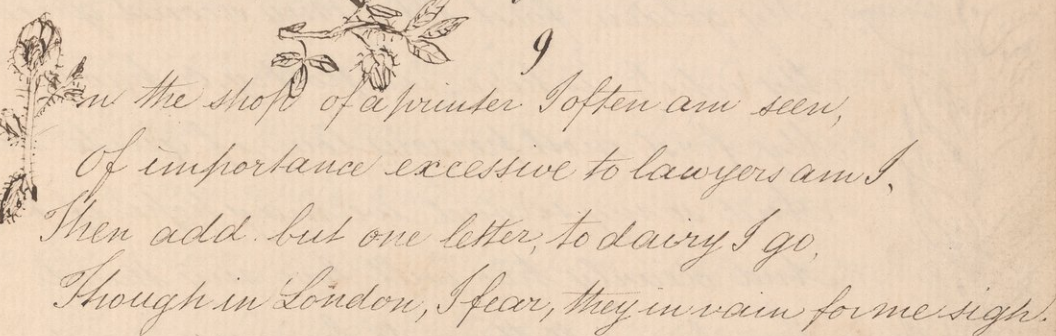 9
In the shop of a printer I often am seen,
Of importance excessive to lawyers am I,
Then add but one letter, to dairy I go,
Though in London, I fear, they in vain for me sigh.